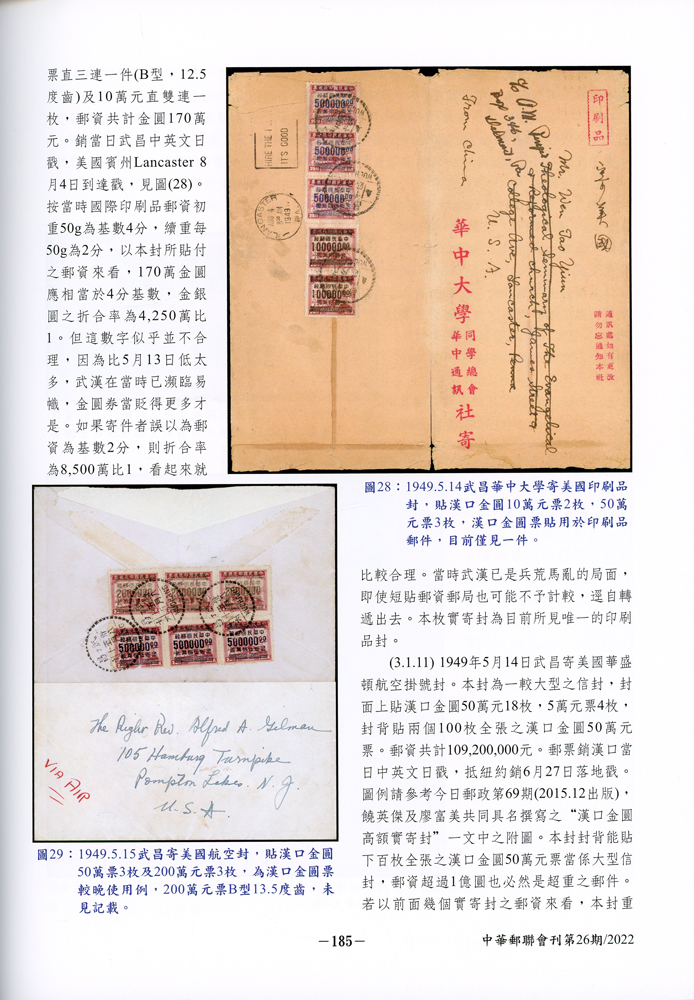 票直三連一件(B型，12.5
度齒)及10萬元直雙連一
枚，郵資共計金圓170萬
元。銷當日武昌中英文日
戳，美國賓州Lancaster 8
月4日到達戳，見圖(28)。
按當時國際印刷品郵資初
重50g為基數4分，續重每
50g為2分，以本封所貼付
之郵資來看，170萬金圓
應相當於4分基數，金銀
圓之折合率為4,250萬比
1。但這數字似乎並不合
理，因為比5月13日低太
多，武漢在當時已瀕臨易
幟，金圓券當貶得更多才
是。如果寄件者誤以為郵
資為基數2分，則折合率
為8,500萬比1，看起來就
印刷品
Mr. Wen Tao Yuin
Theological Seminary of The Evangelical
& Reformed Church, James Street &
College Ave, Lancaster, Penna
U. S. A.
From China
華中大學
同學總會
華中通訊
社寄
通訊處如有更改
請勿忘通知本社
HIRE THE
IT'S GOOD
LANCASTER
1949
500000
500000
500000
100000
100000
圖28：1949.5.14武昌華中大學寄美國印刷品
封，貼漢口金圓10萬元票2枚，50萬
元票3枚，漢口金圓票貼用於印刷品
郵件，目前僅見一件。
2000000
2000000
2000000
500000
500000
500000
The Right Rev. Alfred A. Gilman
105 Hamburg Turnpike
Pompton Lakes. N. J.
U. S. A.
VIA AIR
圖29：1949.5.15武昌寄美國航空封，貼漢口金圓
50萬票3枚及200萬元票3枚，為漢口金圓票
較晚使用例，200萬元票B型13.5度齒，未
見記載。
比較合理。當時武漢已是兵荒馬亂的局面，
即使短貼郵資郵局也可能不予計較，逕自轉
遞出去。本枚實寄封為目前所見唯一的印刷
品封。
(3.1.11) 1949年5月14日武昌寄美國華盛
頓航空掛號封。本封為一較大型之信封，封
面上貼漢口金圓50萬元18枚，5萬元票4枚，
封背貼兩個100枚全張之漢口金圓50萬元
票。郵資共計109,200,000元。郵票銷漢口當
日中英文日戳，抵紐約銷6月27日落地戳。
圖例請參考今日郵政第69期(2015.12出版)，
饒英傑及廖富美共同具名撰寫之“漢口金圓
高額實寄封”一文中之附圖。本封封背能貼
下百枚全張之漢口金圓50萬元票當係大型信
封，郵資超過1億圓也必然是超重之郵件。
若以前面幾個實寄封之郵資來看，本封重
－185－
中華郵聯會刊第26期/2022